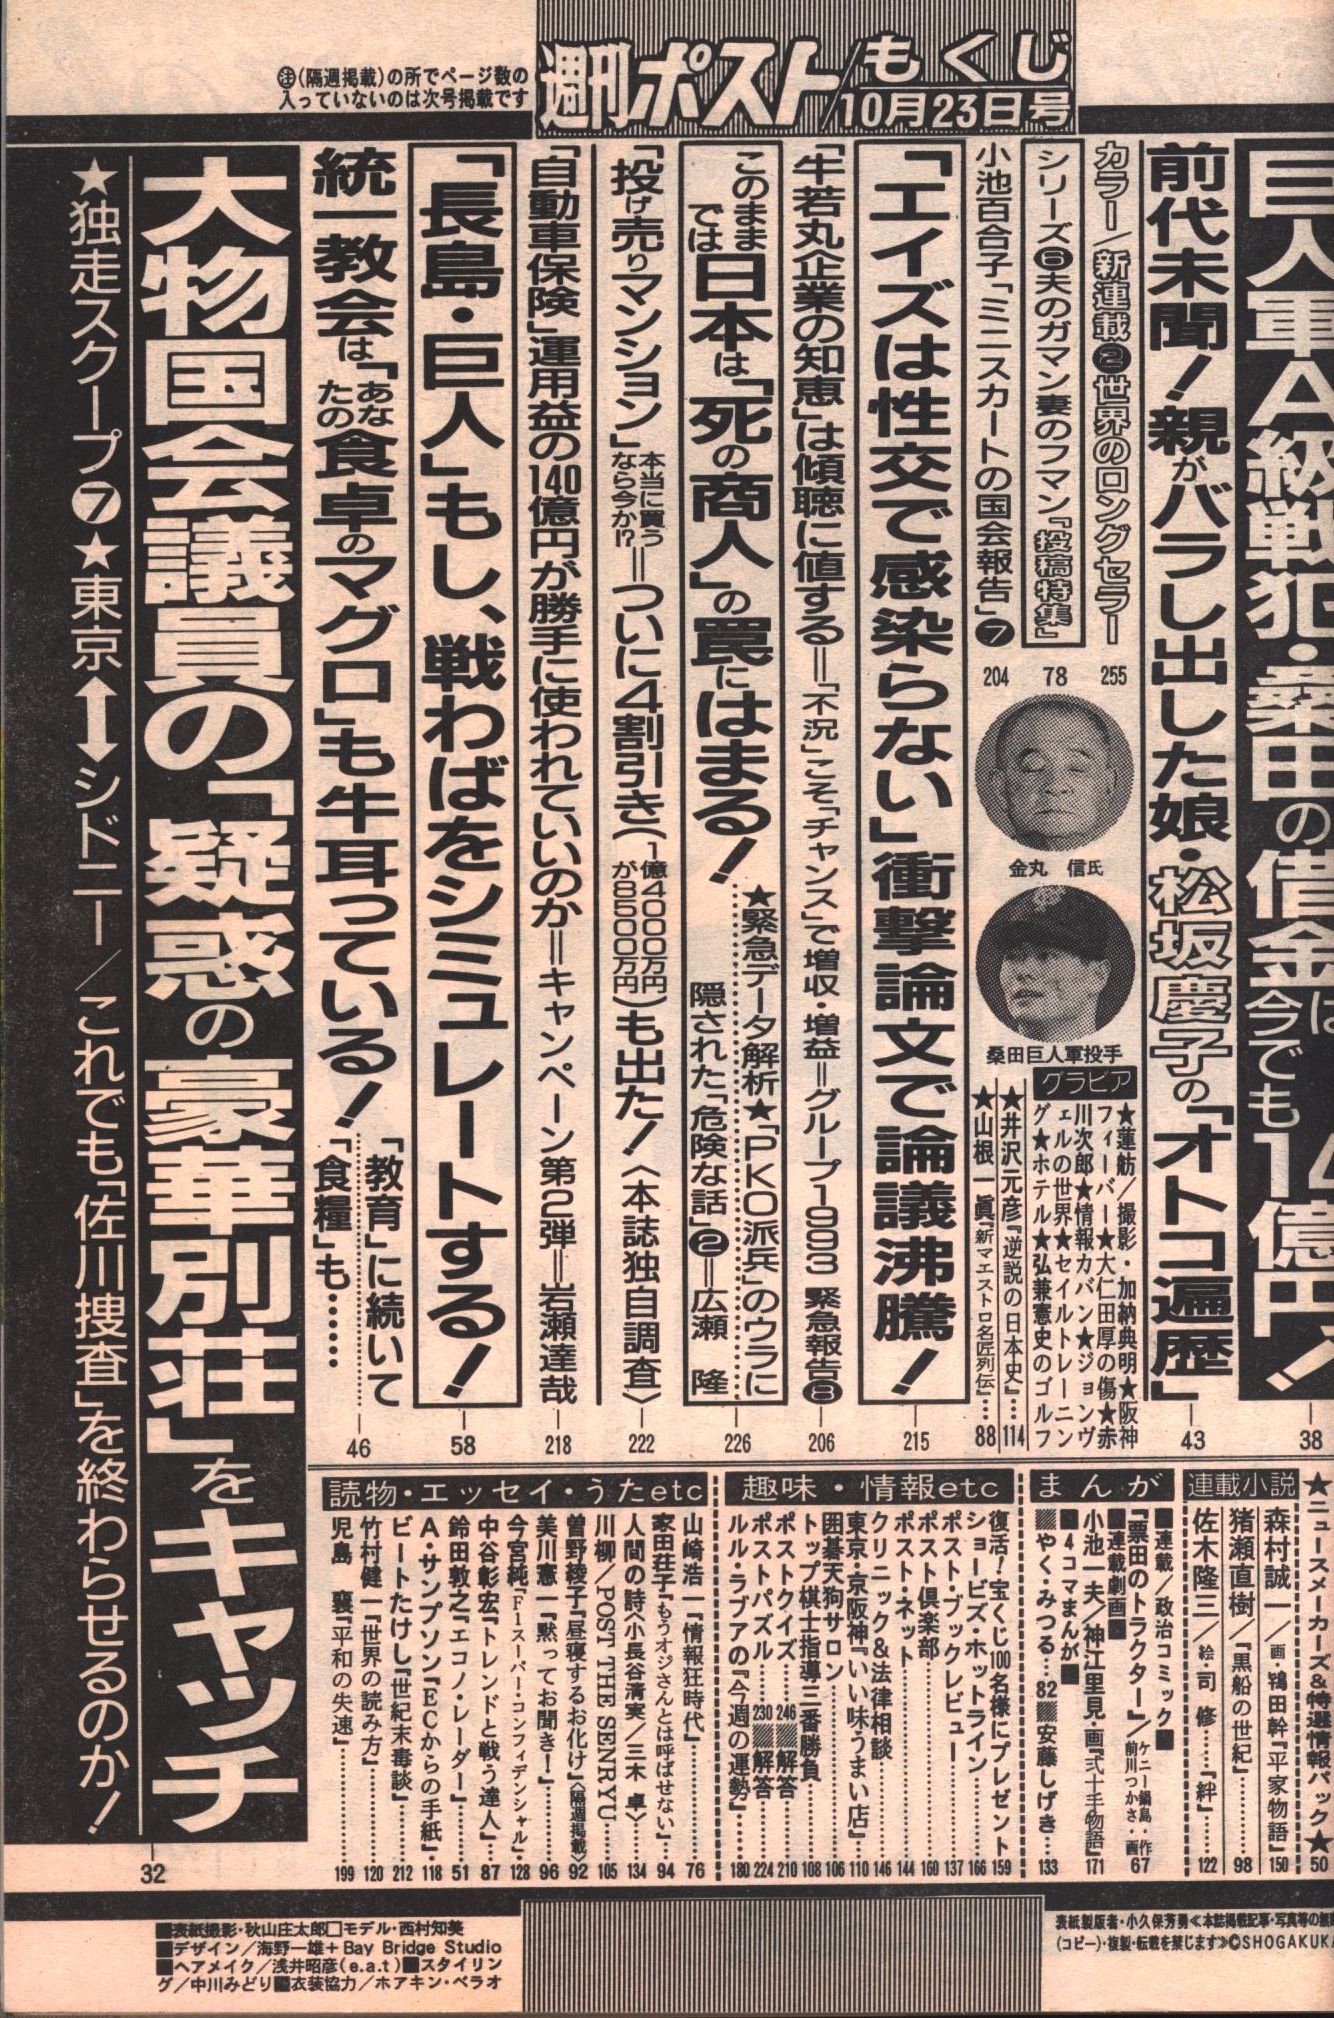 週刊ポスト/もくじ
10月23日号
㊟(隔週掲載)の所でページ数の
入っていないのは次号掲載です
巨人軍A級戦犯・桑田の借金は今でも14億円!
38
前代未聞!親がバラし出した娘・松坂慶子の「オトコ遍歴」
43
カラー/新連載❷世界のロングセラー
255
シリーズ❻夫のガマン妻のフマン「投稿特集」
78
小池百合子「ミニスカートの国会報告」❼
204
金丸 信氏
桑田巨人軍投手
グラビア
★蓮舫/撮影・加納典明★阪神
フィーバー★大仁田厚の傷★赤
川次郎★情報カバン★ジョンヴ
ェルの世界★セイルトレーニン
グ★ホテル★弘兼憲史のゴルフ
★井沢元彦『逆説の日本史』…114
★山根一眞『新マエストロ名匠列伝』…88
「エイズは性交で感染らない」衝撃論文で論議沸騰!
215
「牛若丸企業の知恵」は傾聴に値する=「不況」こそ「チャンス」で増収・増益=グループ1993 緊急報告❽
206
このままでは日本は「死の商人」の罠にはまる!
★緊急データ解析★「PKO派兵」のウラに
隠された「危険な話」❷=広瀬 隆
226
「投げ売りマンション」本当に買うなら今か!?=ついに4割引き(1億4000万円が8500万円)も出た!〈本誌独自調査〉
222
「自動車保険」運用益の140億円が勝手に使われていいのか=キャンペーン第2弾=岩瀬達哉
218
「長島・巨人」もし、戦わばをシミュレートする!
58
統一教会は「あなたの食卓のマグロ」も牛耳っている!
「教育」に続いて
「食糧」も……
46
大物国会議員の「疑惑の豪華別荘」をキャッチ
★独走スクープ❼★東京⬌シドニー/これでも「佐川捜査」を終わらせるのか!
32
★ニュースメーカーズ&特選情報パック★ 50
連載小説
森村誠一/画・鴇田幹『平家物語』150
猪瀬直樹/『黒船の世紀』98
佐木隆三/絵・司 修……『絆』122
まんが
■連載/政治コミック■
『票田のトラクター』/ケニー鍋島・作 前川つかさ・画 67
■連載劇画■
小池一夫/神江里見・画『弐十手物語』171
■4コマまんが■
▨やくみつる…82▨安藤しげき…133
趣味・情報etc
復活!宝くじ100名様にプレゼント 159
ショービズ・ホットライン 166
ポスト・ブックレビュー 137
ポスト倶楽部 160
ポスト・ネット 144
クリニック&法律相談 146
東京・京阪神『いい味うまい店』110
囲碁天狗サロン 106
トップ棋士指導三番勝負 108
ポストクイズ…246▨解答 210
ポストパズル…230▨解答 224
ルル・ラブアの『今週の運勢』180
読物・エッセイ・うたetc
山崎浩一『情報狂時代』76
家田荘子『もうオジさんとは呼ばせない』94
人間の詩〈小長谷清実/三木 卓〉134
川柳/POST THE SENRYU 105
曽野綾子『昼寝するお化け』〈隔週掲載〉92
美川憲一『黙ってお聞き!』96
今宮純『F1スーパー・コンフィデンシャル』128
中谷彰宏『トレンドと戦う達人』87
鈴田敦之『エコノ・レーダー』51
A・サンプソン『ECからの手紙』118
ビートたけし『世紀末毒談』212
竹村健一『世界の読み方』120
児島 襄『平和の失速』199
■表紙撮影・秋山庄太郎□モデル・西村知美
■デザイン/海野一雄+Bay Bridge Studio
■ヘアメイク/浅井昭彦(e.a.t)■スタイリン
グ/中川みどり■衣装協力/ホアキン・ベラオ
表紙製版者・小久保芳勇≪本誌掲載記事・写真等の無断
(コピー)・複製・転載を禁じます≫©SHOGAKUKA